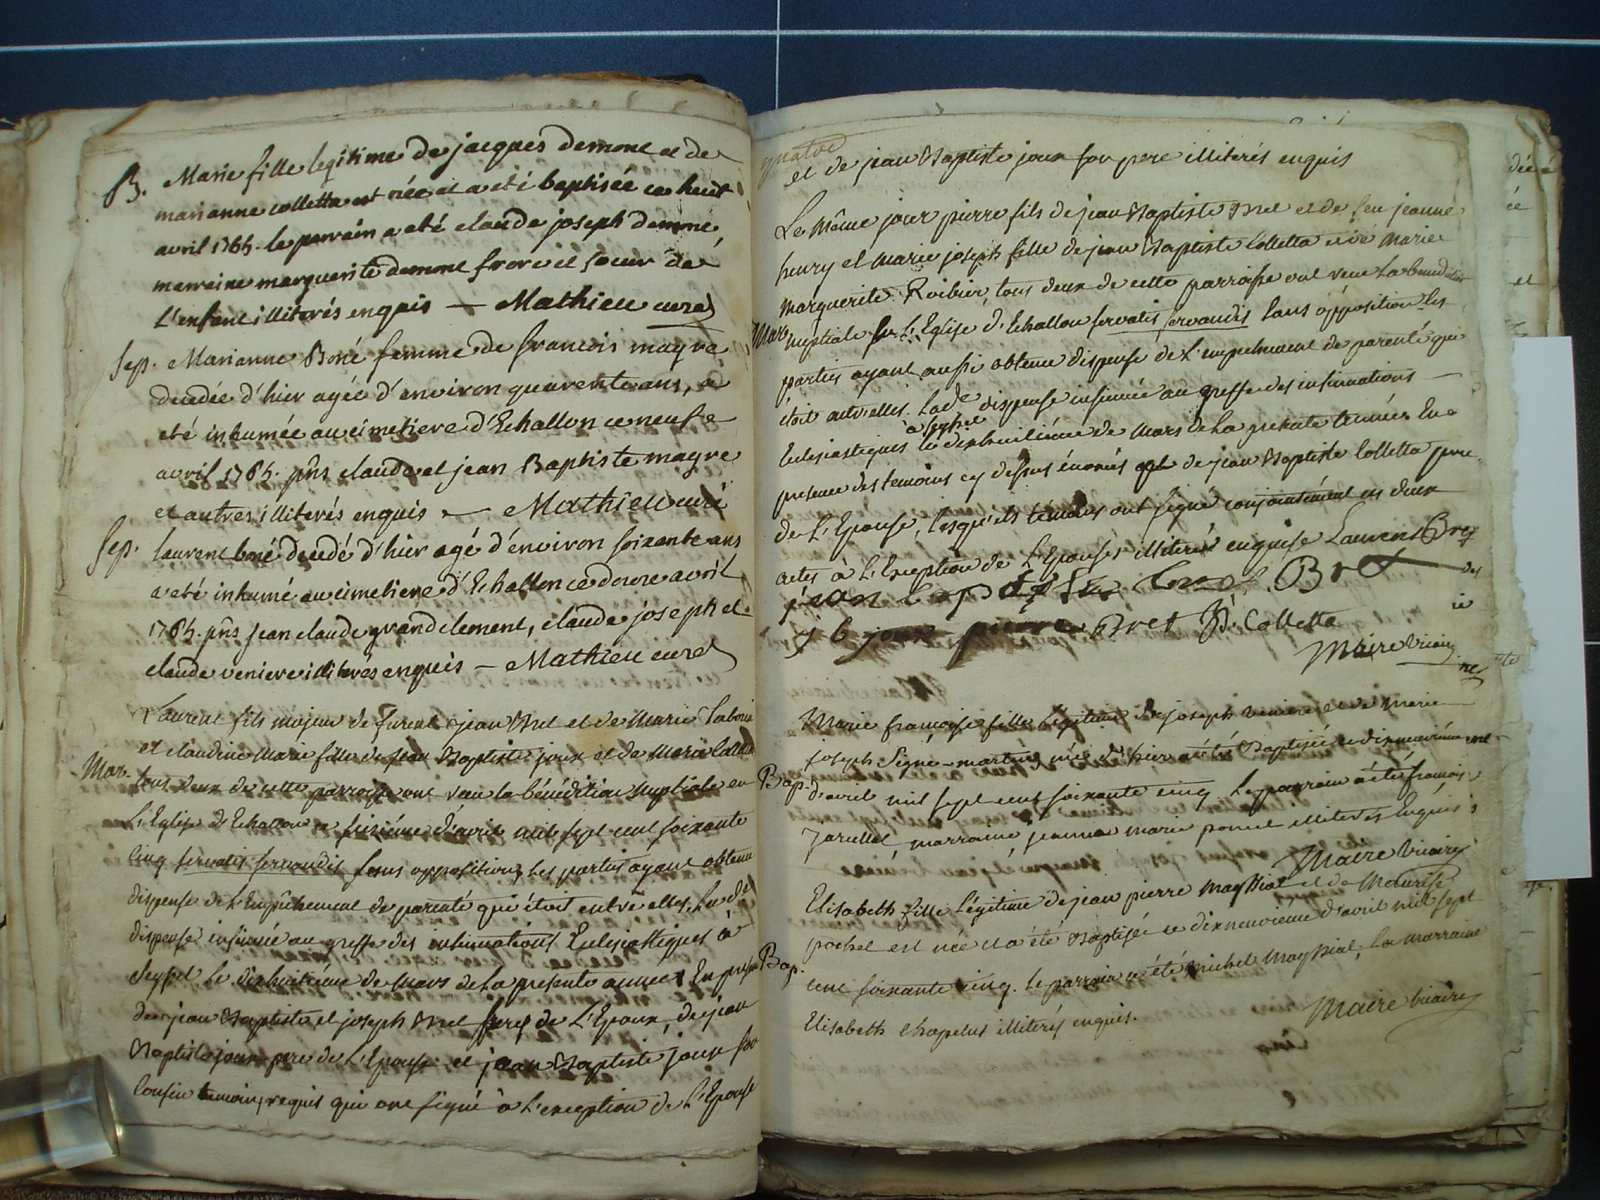 B. Marie fille legitime de jacques demone et de
marianne colletta est née et a eté baptisée ce huit
avril 1765. le parrain a eté claude joseph demone,
marraine marguerite demone frere et soeur de
L'enfant illiterés enquis — Mathieu curé
Sep. Marianne Boné femme de francois mayre
decedée d'hier agée d'environ quarente ans, a
eté inhumée au cimetiere d'Echallon ce neuf
avril 1765. pns claude et jean Baptiste mayre
et autres illiterés enquis — Mathieu curé
Sep. Laurent boné decedé d'hier agé d'environ soixante ans
a eté inhumé au cimetiere d'Echallon ce douze avril
1765. pns jean claude grandclement, claude joseph et
claude veniere illiterés enquis — Mathieu curé
Laurent fils majeur de jean Bret et de Marie
et claudine Marie fille de jean Baptiste joux et de Marie
Mar. tous deux de cette parroisse ont recu la bénédiction nuptiale en
L'Eglise d'Echallon ce seizième d'avril mil sept cent soixante
cinq servatis servandis sans opposition, les parties ayant obtenu
dispense de L'Empêchement de parenté qui étoit entre elles, La de
dispense insinuée au greffe des insinuations Ecclesiastiques à
Seyssel le dixhuitième de Mars de la presente année. En presence
de jean Baptiste et joseph Bret freres de L'Epoux, de jean
Baptiste joux pere de L'Epouse et jean Baptiste joux son
Cousin temoins requis qui ont signé à L'exception de L'Epouse
et de jean Baptiste joux son pere illiterés enquis
Le même jour pierre fils de jean Baptiste Bret et de feu jeanne
henry et Marie joseph fille de jean Baptiste Colletta et de Marie
Marguerite Roibier, tous deux de cette parroisse ont recu La benediction
Mar. nuptiale en L'Eglise d'Echallon servatis servandis sans opposition les
parties ayant aussi obtenu dispense de L'empechement de parenté qui
étoit entre elles. La de dispense insinuée au greffe des insinuations
à Seyssel
Ecclesiastiques le dixhuitième de Mars de La presente année. En
presence des temoins cy dessus énoncés et de jean Baptiste Colletta pere
de L'Epouse, lesquels témoins ont signé conjointement les deux
actes à L'Exception de L'Epouse illiterée enquise Laurent Bret
jean bap Bret
j b joux pierre Bret JB. Colletta
Maire vicaire
Marie francoise fille légitime de joseph veniere et de marie
joseph Segné-martin née d'hier a été Baptisée ce dixneuvième
Bap. d'avril mil sept cent soixante cinq. Le parrain a été francois
, marraine jeanne marie poncet illiterés Enquis
Maire vicaire
Elisabeth fille Légitime de jean pierre Mayssiat et de Maurise
pochet est née et a été Baptisée ce dixneuvieme d'avril mil sept
Bap. cent soixante cinq. le parrain a été Michel Mayssiat, la marraine
Elisabeth Chapelus illiterés enquis.
Maire vicaire